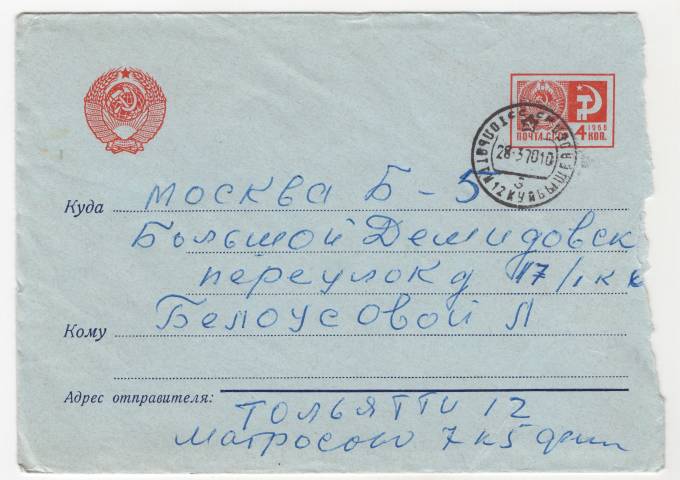 1966
ПОЧТА СССР 4 КОП.
28-3.7010
12 КУЙБЫШЕВСК
Куда МОСКВА Б-5
Большой Демидовск
переулок д 17/1 к
Кому Белоусовой Л
Адрес отправителя: ТОЛЬЯТТИ 12
Матросово 7 к 5